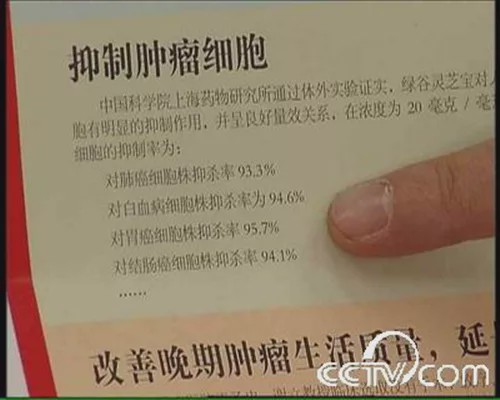 抑制肿瘤细胞
中国科学院上海药物研究所通过体外实验证实,绿谷灵芝宝对
胞有明显的抑制作用,并呈良好量效关系,在浓度为 20 毫克 / 毫
细胞的抑制率为:
对肺癌细胞株抑杀率 93.3%
对白血病细胞株抑杀率为 94.6%
对胃癌细胞株抑杀率 95.7%
对结肠癌细胞株抑杀率 94.1%
……
改善晚期肿瘤生活质量,延
cctv.com
央视国际